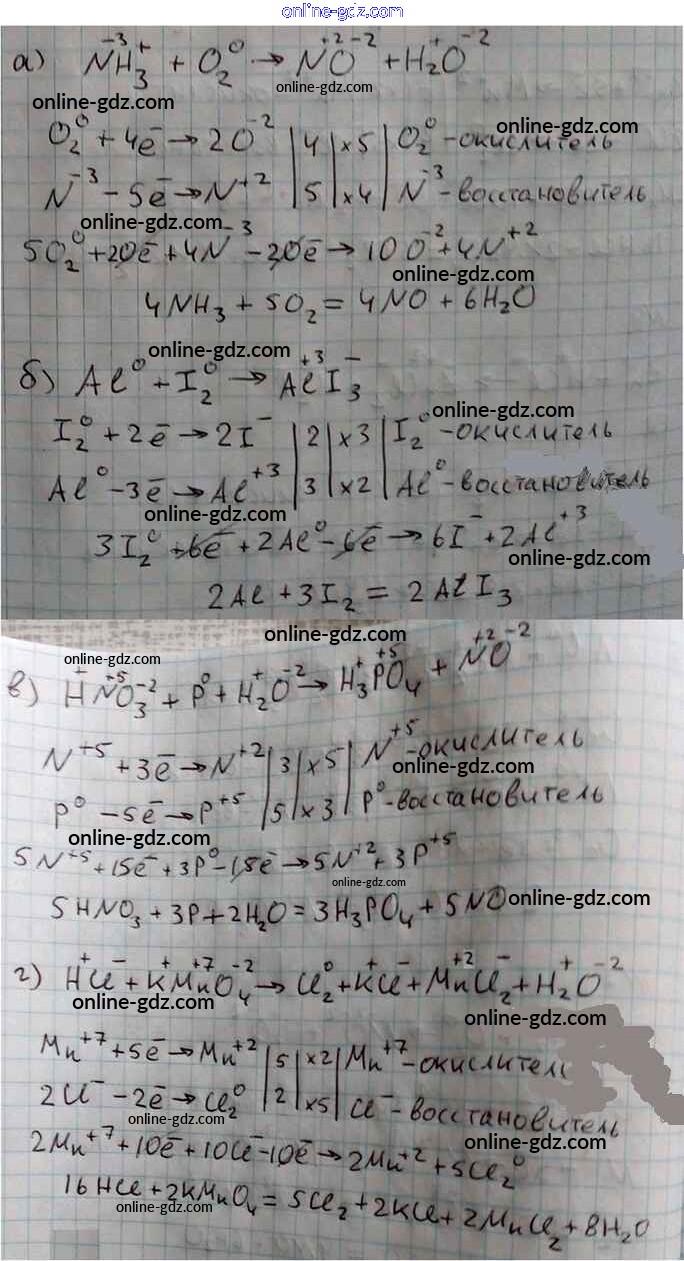 online-gdz.com
а) N⁻³H₃⁺ + O₂⁰ → N⁺²O⁻² + H₂⁺O⁻²
online-gdz.com
online-gdz.com
online-gdz.com
O₂⁰ + 4ē → 2O⁻² | 4 | ×5 | O₂⁰ - окислитель
N⁻³ - 5ē → N⁺² | 5 | ×4 | N⁻³ - восстановитель
online-gdz.com
5O₂⁰ + 20ē + 4N⁻³ - 20ē → 10O⁻² + 4N⁺²
online-gdz.com
4NH₃ + 5O₂ = 4NO + 6H₂O
online-gdz.com
б) Al⁰ + I₂⁰ → Al⁺³I₃⁻
online-gdz.com
I₂⁰ + 2ē → 2I⁻ | 2 | ×3 | I₂⁰ - окислитель
online-gdz.com
Al⁰ - 3ē → Al⁺³ | 3 | ×2 | Al⁰ - восстановитель
online-gdz.com
3I₂⁰ + 6ē + 2Al⁰ - 6ē → 6I⁻ + 2Al⁺³
online-gdz.com
2Al + 3I₂ = 2AlI₃
online-gdz.com
online-gdz.com
в) H⁺N⁺⁵O₃⁻² + P⁰ + H₂⁺O⁻² → H₃⁺P⁺⁵O₄ + N⁺²O⁻²
N⁺⁵ + 3ē → N⁺² | 3 | ×5 | N⁺⁵ - окислитель
online-gdz.com
P⁰ - 5ē → P⁺⁵ | 5 | ×3 | P⁰ - восстановитель
online-gdz.com
5N⁺⁵ + 15ē + 3P⁰ - 15ē → 5N⁺² + 3P⁺⁵
online-gdz.com
5HNO₃ + 3P + 2H₂O = 3H₃PO₄ + 5NO
online-gdz.com
г) H⁺Cl⁻ + K⁺Mn⁺⁷O₄⁻² → Cl₂⁰ + K⁺Cl⁻ + Mn⁺²Cl₂⁻ + H₂⁺O⁻²
online-gdz.com
online-gdz.com
Mn⁺⁷ + 5ē → Mn⁺² | 5 | ×2 | Mn⁺⁷ - окислитель
2Cl⁻ - 2ē → Cl₂⁰ | 2 | ×5 | Cl⁻ - восстановитель
online-gdz.com
2Mn⁺⁷ + 10ē + 10Cl⁻ - 10ē → 2Mn⁺² + 5Cl₂⁰
online-gdz.com
16HCl + 2KMnO₄ = 5Cl₂ + 2KCl + 2MnCl₂ + 8H₂O
online-gdz.com
online-gdz.com